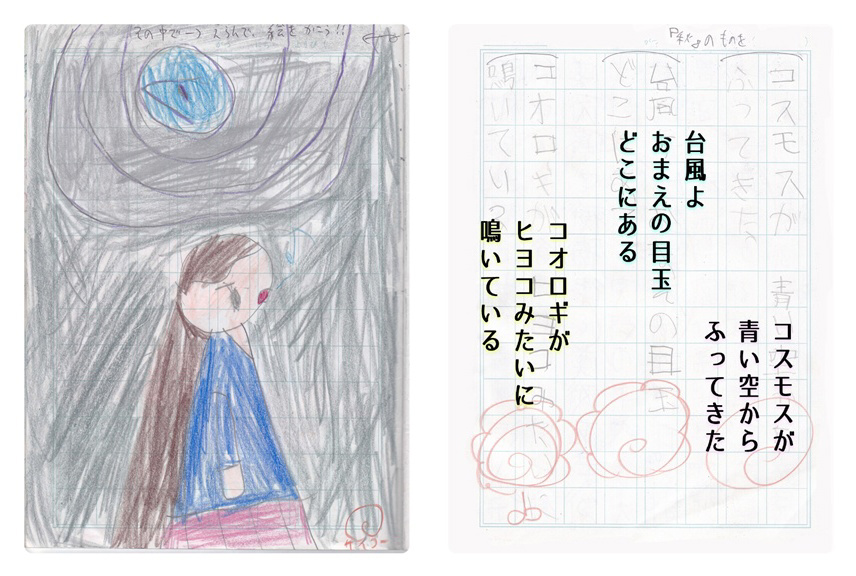 その中で一つえらんで、絵をかこう!!
サイコー
『秋』のものを
コスモスが
青い空から
ふってきた
台風よ
おまえの目玉
どこにある
コオロギが
ヒヨコみたいに
鳴いている